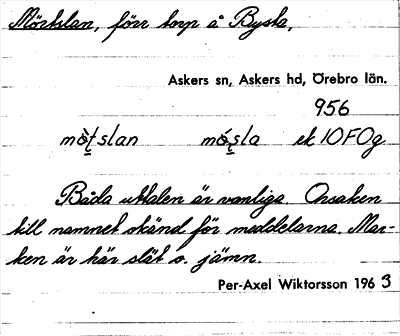 Mörtslan, förr torp å Bysta,
Askers sn, Askers hd, Örebro län.
956
mö̀ṭslan mö́ṣla ek 10FOg
Båda uttalen är vanliga. Orsaken
till namnet okänd för meddelarna. Mar-
ken är här slät o. jämn.
Per-Axel Wiktorsson 1963